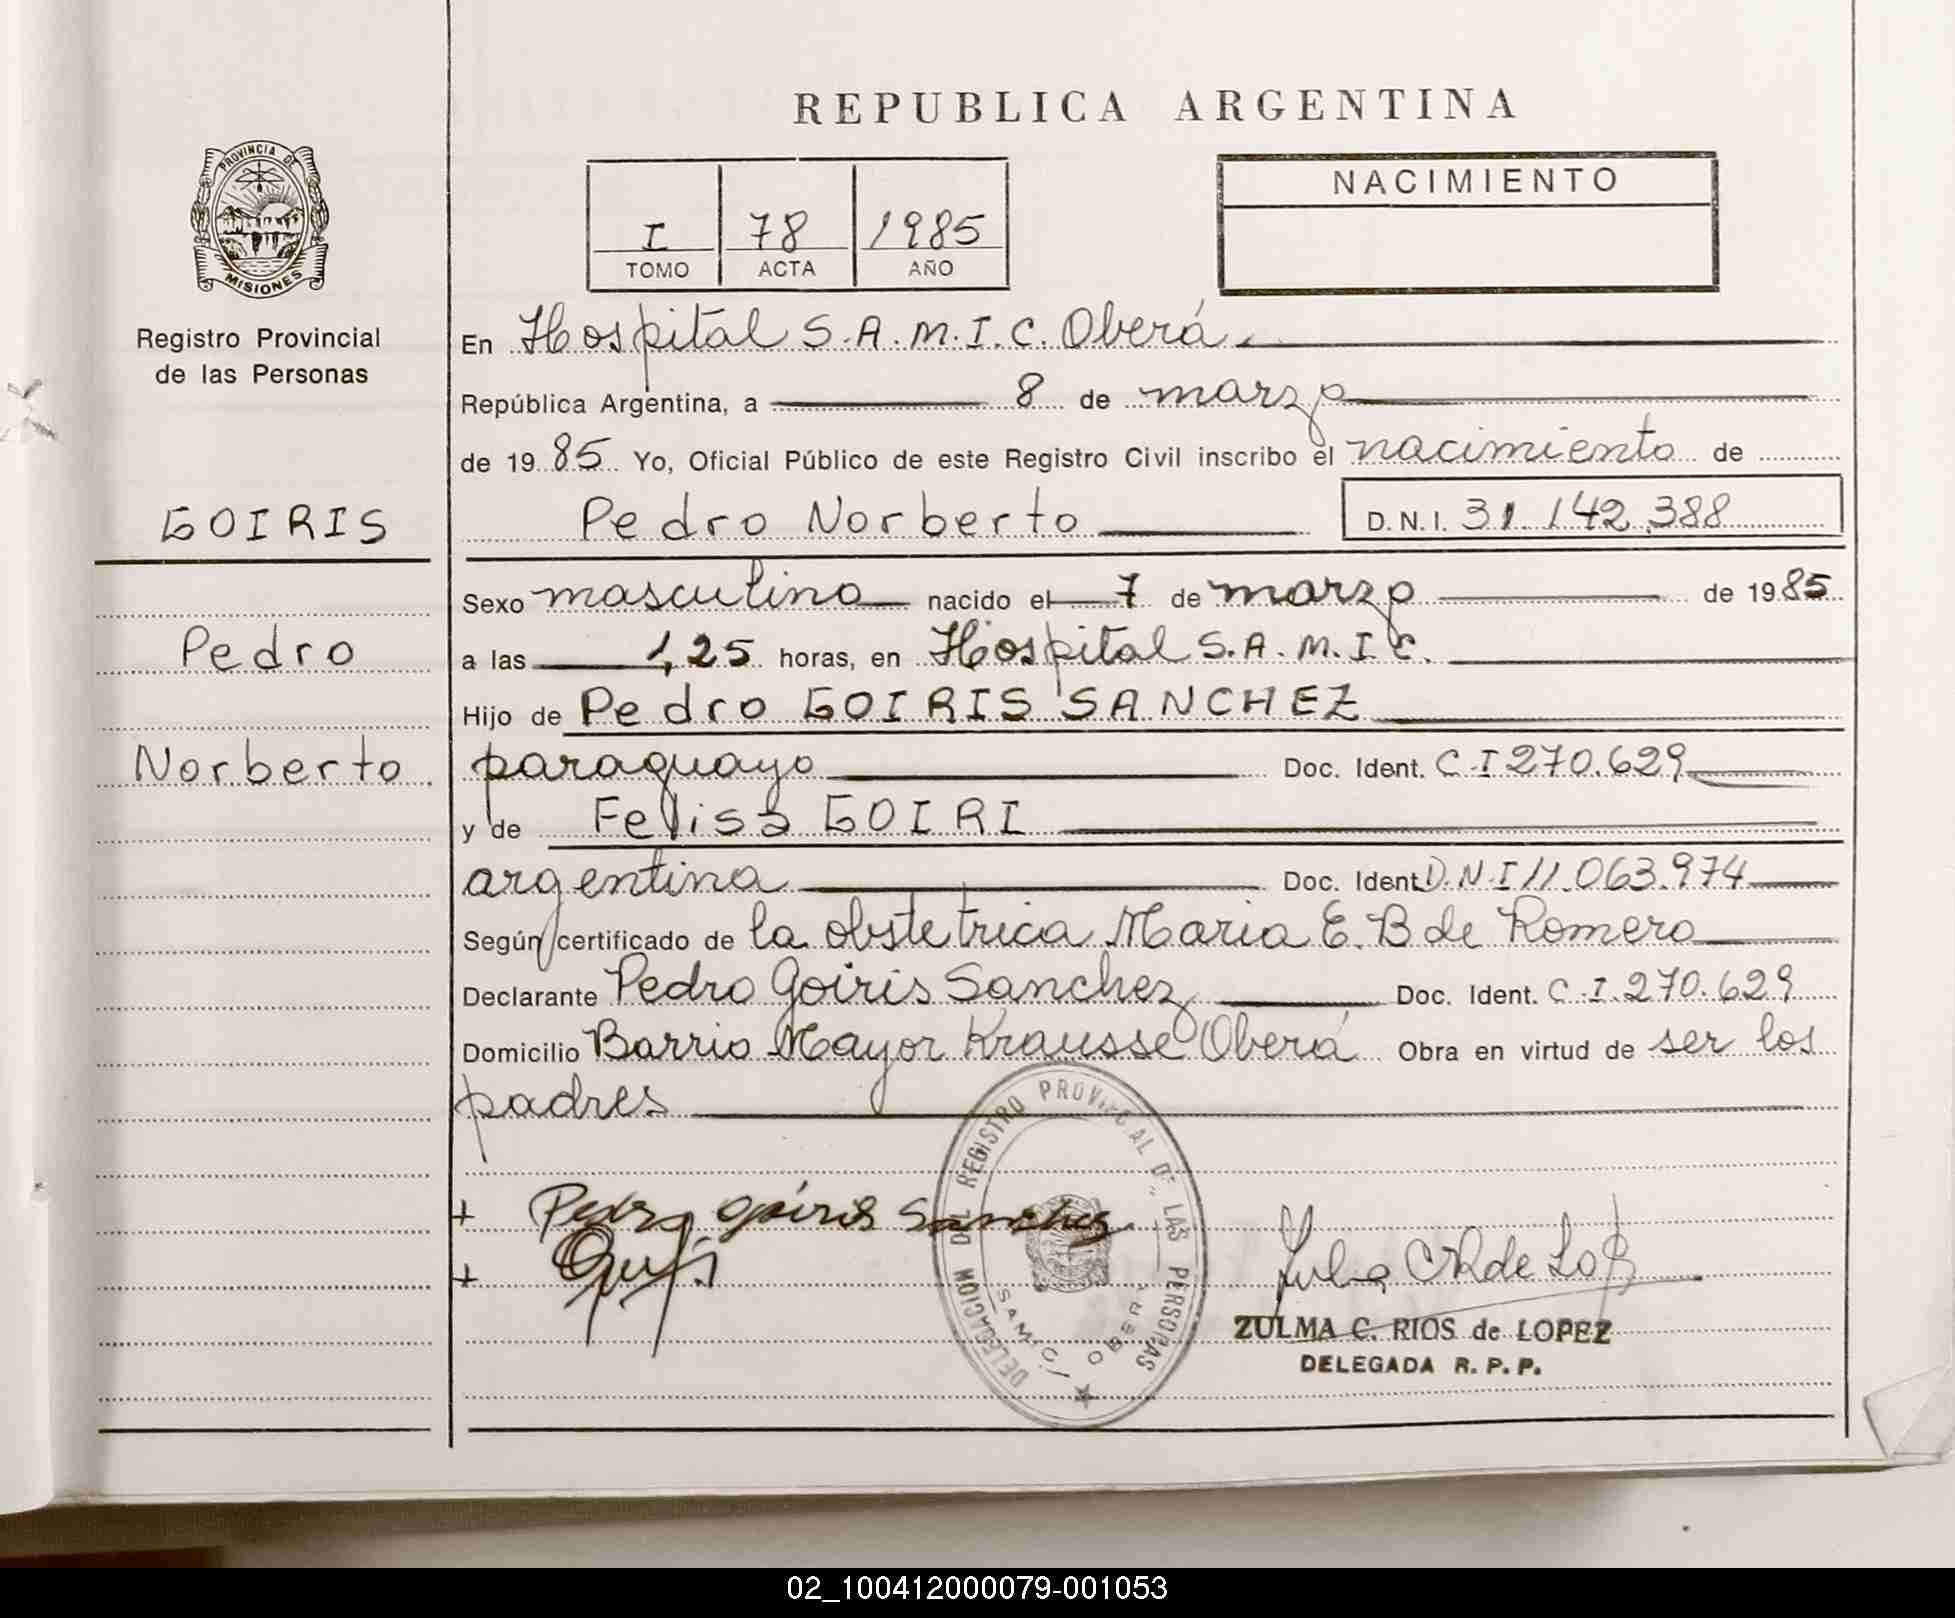 REPUBLICA ARGENTINA
PROVINCIA DE
MISIONES
Registro Provincial
de las Personas
GOIRIS
Pedro
Norberto
I 78 1985
TOMO ACTA AÑO
NACIMIENTO
En Hospital S.A.M.I.C. Oberá.
República Argentina, a 8 de marzo
de 1985 Yo, Oficial Público de este Registro Civil inscribo el nacimiento de
Pedro Norberto D.N.I. 31.142.388
Sexo masculino nacido el 7 de marzo de 1985
a las 1,25 horas, en Hospital S.A.M.I.C.
Hijo de Pedro GOIRIS SANCHEZ
paraguayo Doc. Ident. C.I 270.629
y de Felisa GOIRI
argentina Doc. Ident. D.N.I 11.063.974
Según certificado de la obstetrica Maria E. B de Romero
Declarante Pedro Goiris Sanchez Doc. Ident. C.I. 270.629
Domicilio Barrio Mayor Krausse Oberá Obra en virtud de ser los
padres
+ Pedro Goiris Sanchez
+
DELEGACION DEL REGISTRO PROVINCIAL DE LAS PERSONAS
S.A.M.I.C. / OBERA
ZULMA C. RIOS de LOPEZ
DELEGADA R. P. P.
02_100412000079-001053